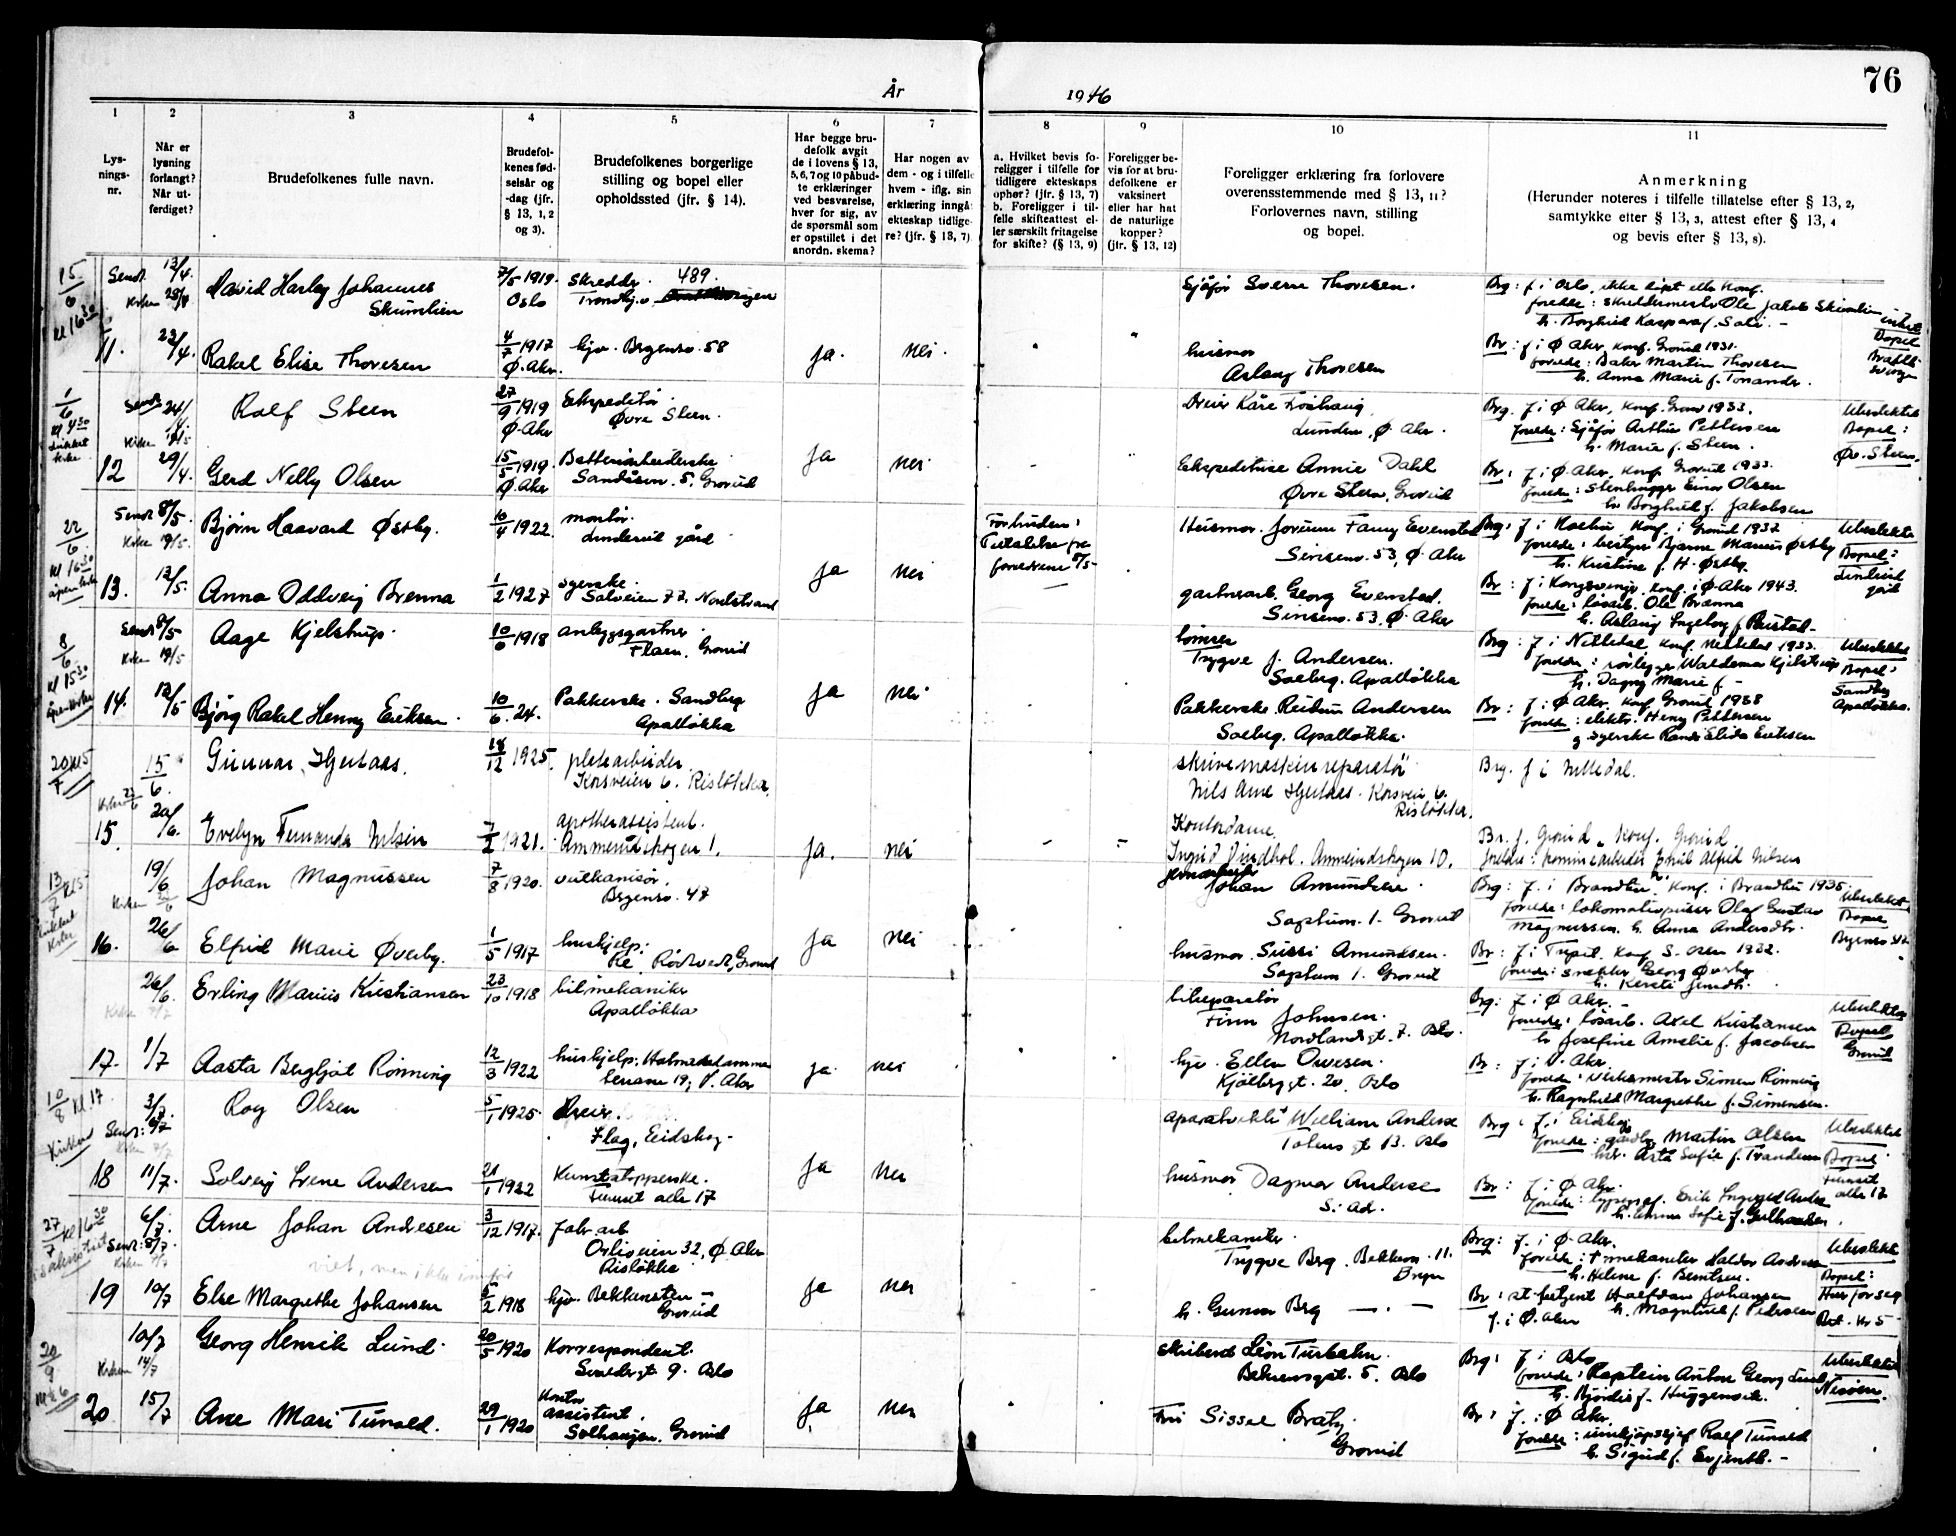 76
År 1946
1
Lys-
nings-
nr.
2
Når er
lysning
forlangt?
Når ut-
ferdiget?
3
Brudefolkenes fulle navn.
4
Brudefol-
kenes fød-
selsår og
-dag (jfr.
§ 13, 1, 2
og 3).
5
Brudefolkenes borgerlige
stilling og bopel eller
opholdssted (jfr. § 14).
6
Har begge bru-
defolk avgit
de i lovens § 13,
5, 6, 7 og 10 påbud-
te erklæringer
ved besvarelse,
hver for sig, av
de spørsmål som
er opstillet i det
anordn. skema?
7
Har nogen av
dem - og i tilfelle
hvem - iflg. sin
erklæring inngå
ekteskap tidlige-
re? (jfr. § 13, 7)
8
a. Hvilket bevis fo-
religger i tilfelle for
tidligere ekteskaps
ophør? (jfr. § 13, 7)
b. Foreligger i til-
felle skifteattest el-
ler særskilt fritagelse
for skifte? (§ 13, 9)
9
Foreligger be-
vis for at bru-
defolkene er
vaksinert
eller har hat
de naturlige
kopper?
(jfr. § 13, 12)
10
Foreligger erklæring fra forlovere
overensstemmende med § 13, 11?
Forlovernes navn, stilling
og bopel.
11
Anmerkning
(Herunder noteres i tilfelle tillatelse efter § 13, 2,
samtykke efter § 13, 3, attest efter § 13, 4
og bevis efter § 13, 8).
15/6 kl 16 30
Sendt 13/4.
David Harley Johannes
Skumlien
7/5 1919.
Oslo
Skredder. 489.
Trondhj.v.
Sjåfør Sverre Thoresen.
Brg: f i Oslo, ikke døpt eller konf.
foreldre: skreddermester Ole Jakob Skumlien
11. 23/4.
Rakel Elise Thoresen
4/7 1917
Ø. Aker.
hjv. Bergensv. 58
Ja. nei.
husmor
Aslaug Thoresen
Br: f i Ø Aker, konf. Grorud 1931.
foreldre: Baker Martin Thoresen
h. Anna Marie f. Tonander.
1/6 kl 4 30
Sendt 24/4.
Rolf Steen
27/9 1919
Ø. Aker
Ekspeditør.
Øvre Steen.
Dreier Kåre
Lunden, Ø. Aker.
Brg. f i Ø Aker, konf. Grorud 1933.
foreldre: Sjåfør Arthur Pettersen
h. Marie f. Steen.
Bopel:
Øv. Steen.
12 29/4.
Gerd Nelly Olsen
15/5 1919.
Ø. Aker
Ja nei
Ekspeditrise Annie Dahl
Øvre Steen, Grorud
Br: f i Ø. Aker, konf. Grorud 1933.
foreldre: Stenhugger Einar Olsen
h. Borghild f. Jakobsen
22/6 kl 16 30
Sendt 8/5.
Kirken 19/5.
Bjørn Haavard Østby.
10/4 1922.
montør.
Linderud gård
Husmor Jorunn Fanny Evensted
Sinsenv. 53, Ø. Aker
Brg: f i konf. i Grorud 1937
foreldre: bestyrer Bjarne Marius Østby
h. Kristine f. H. Østby.
Bopel:
Linderud
gård
13. 13/5.
Anna Oddveig Brenna
1/2 1927
syerske.
Solveien 72. Nordstrand
Ja nei
gartnerarb. Georg Evensted.
Sinsenv. 53, Ø. Aker
Br: f i Kongsvinger, konf. i Ø. Aker 1943.
foreldre: løsarb. Ole Brænna
h. Aslaug Ingeborg f.
8/6 kl 15 30
Sendt 8/5
Kirken 19/5
Aage Kjelstrup.
10/6 1918
anleggsgartner.
Flaen. Grorud
Trygve J. Andersen.
Solberg. Apalløkka
Brg: f i Nittedal, konf. Nittedal 1933.
foreldre: rørlegger Waldemar Kjelstrup
h. Dagny Marie f -
Bopel:
Sandberg
Apalløkka.
14. 13/5
Bjørg Rakel Henny Eriksen.
10/6. 24.
Pakkerske. Sandberg
Apalløkka
Ja nei.
Pakkerske. Reidun Andersen
Solberg. Apalløkka.
Br: f: i Ø Aker. Konf. Grorud 1938
foreldre: elektr. Henry Pettersen
g syerske Randi Elida Eriksen
20/7
15/6.
Gunnar Hjertaas.
18/12 1925.
platearbeider.
Korsveien 6. Risløkka.
skrivemaskinreparatør
Nils Arne Hjertaas. Korsveien 6.
Risløkka.
Brg. f i Nittedal.
15. 20/6.
Evelyn Fernanda Nilsen
7/2 1921.
apotekerassistent.
Ammerudskogen 1.
Ja. nei
Kontordame.
Ingrid Lindhol. Ammerudskogen 10.
Br. f. Grorud, konf. Grorud.
foreldre: kommunearbeider Emil Alfred Nilsen
13/7
19/6
Johan Magnussen
7/8 1920.
vulkanisør.
Bergensv. 47
Johan Amundsen.
Sagstuen. 1. Grorud
Brg: f. i Brandbu, konf. i Brandbu 1935.
foreldre: lokomotivpusser Olaf Gustav
Magnussen. h. Anna Andersdtr.
Bopel
Bergensv 47
16. 26/6
Elfrid Marie Øverby.
1/5 1917
hushjelp.
Rødtvedt, Grorud
Ja nei
husmor. Sussi Amundsen.
Sagstuen 1. Grorud
Br: f: i Trysil, konf. S. Osen 1932.
foreldre: snekker Georg Øverby
26/6.
Erling Marius Kristiansen
23/10 1918
bilmekaniker
Apalløkka
bilreparatør
Finn Johnsen.
Nordlandsgt. 7. Oslo.
Brg: f i Ø Aker.
foreldre: løsarb. Axel Kristiansen
h. Josefine Amalie f. Jacobsen
Bopel
Grorud
17. 1/7
Aasta Bergljot Rønning
12/3 1922
hushjelp. Holmendammen
terrasse 19, V. Aker
Ja. nei
hjv. Ellen Owesen.
Kjølberggt. 20. Oslo
Br: f i V. Aker.
foreldre: verksmester Simen Rønning
h. Ragnhild Margrethe f. Simensen.
10/8 kl 17.
3/7.
Roy Olsen
5/1 1925
Dreier.
Flag, Eidskog.
William Anderse
Totens gt 13. Oslo
Brg: f. i Eidskog
foreldre: gårdbr. Martin Olsen
h. Asta Sofie f. Tranden
Bopel:
18 11/7.
Solveig Irene Andersen
21/1 1922
Kunststopperske.
Furuset alle 17
Ja nei
husmor Dagmar Anderse
S. ad.
Br: f: i Ø Aker.
27/7 kl 16 30
6/7.
Arne Johan Andresen
3/12 1917.
fabr. arb
Orliveien 32, Ø. Aker
Risløkka
viet, men ikke innført
bilmekaniker.
Trygve Berg. Bekkev. 11.
Bryn
Brg: f. i Ø. Aker.
foreldre: † mekaniker Haldor Andresen
h. Helene f. Berntsen.
Bopel:
Hver for seg
19 10/7
Else Margrethe Johansen
5/2 1918
hjv. Bekkensten -
Grorud
Ja nei
h. Gunvor Berg — . —
Br: st. betjent Halfdan Johansen
f. i Ø. Aker h. Magnhild f. Pedersen
20/9
10/7
Kirken 14/7
Georg Henrik Lund.
20/5 1920
Korrespondent.
Oslo
Behrensgt. 5. Oslo
Brg: f i Oslo
foreldre: Kaptein Anton Georg Lund
20 15/7
Ane Mari Tunold.
29/1 1920
Kontor
assistent.
Solhaugen. Grorud
Ja nei
Fru Sissel Bratz.
Grorud
Br: f. i Ø Aker.
foreldre: innkjøpssjef Rolf Tunold
h. Sigrid f. Evjenth. -